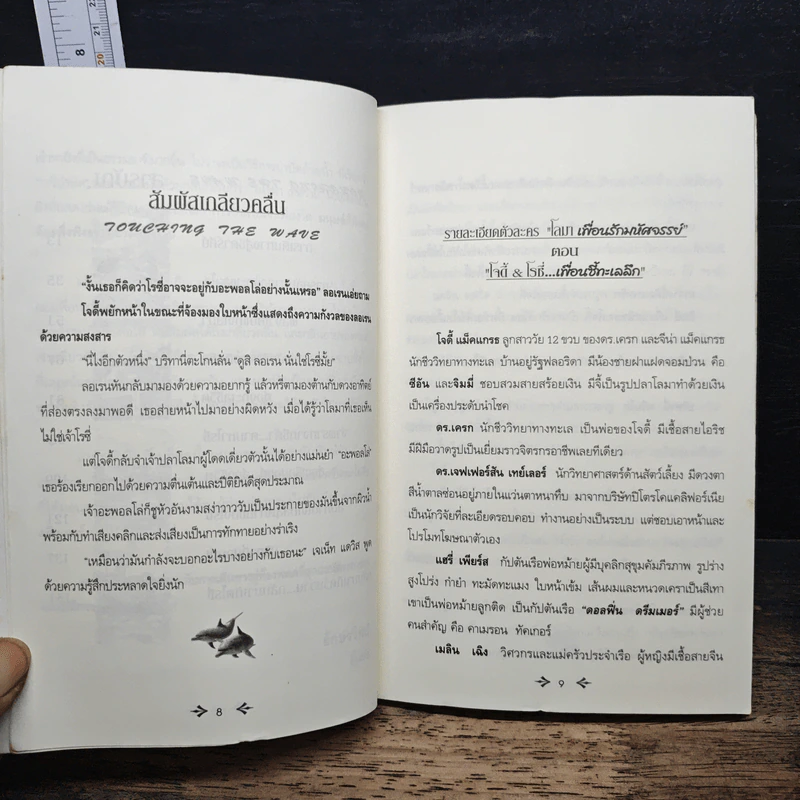 8
20
21
สัมผัสเกลียวคลื่น
TOUCHING THE WAVE
"งั้นเธอก็คิดว่าโรซี่อาจจะอยู่กับอะพอลโล่อย่างนั้นเหรอ" ลอเรนเอ่ยถาม
โจดี้พยักหน้าในขณะที่จ้องมองใบหน้าซึ่งแสดงถึงความกังวลของลอเรน
ด้วยความสงสาร
"นี่ไงอีกตัวหนึ่ง" บริทานี่ตะโกนลั่น "ดูสิ ลอเรน นั่นใช่โรซี่มั้ย"
ลอเรนหันกลับมามองด้วยความอยากรู้ แล้วหรี่ตามองต้านกับดวงอาทิตย์
ที่ส่องตรงลงมาพอดี เธอส่ายหน้าไปมาอย่างผิดหวัง เมื่อได้รู้ว่าโลมาที่เธอเห็น
ไม่ใช่เจ้าโรซี่
แต่โจดี้กลับจำเจ้าปลาโลมาผู้โดดเดี่ยวตัวนั้นได้อย่างแม่นยำ "อะพอลโล่"
เธอร้องเรียกออกไปด้วยความตื่นเต้นและปิติยินดีสุดประมาณ
เจ้าอะพอลโล่ก็ชูหัวอันงามสง่าวาววับเป็นประกายของมันขึ้นจากผิวน้ำ
พร้อมกับทำเสียงคลิกและส่งเสียงเป็นการทักทายอย่างร่าเริง
"เหมือนว่ามันกำลังจะบอกอะไรบางอย่างกับเธอนะ" เจเน็ท แดวิส พูด
ด้วยความรู้สึกประหลาดใจยิ่งนัก
8
รายละเอียดตัวละคร "โลมา เพื่อนรักมหัศจรรย์"
ตอน
"โจดี้ & โรซี่...เพื่อนซี้ทะเลลึก"
โจดี้ แม็คแกรธ ลูกสาววัย 12 ขวบ ของดร.เครก และจีน่า แม็คแกรธ
นักชีววิทยาทางทะเล บ้านอยู่รัฐฟลอริดา มีน้องชายฝาแฝดจอมป่วน คือ
ซีอัน และจิมมี่ ชอบสวมสายสร้อยเงิน มีจี้เป็นรูปปลาโลมาทำด้วยเงิน
เป็นเครื่องประดับนำโชค
ดร.เครก นักชีววิทยาทางทะเล เป็นพ่อของโจดี้ มีเชื้อสายไอริช
มีฝีมือวาดรูปเป็นเยี่ยมราวจิตรกรอาชีพเลยทีเดียว
ดร.เจฟเฟอร์สัน เทย์เลอร์ นักวิทยาศาสตร์ด้านสัตว์เลี้ยง มีดวงตา
สีน้ำตาลซ่อนอยู่ภายในแว่นตาหนาทึบ มาจากบริษัทปิโตรโคแคลิฟอร์เนีย
เป็นนักวิจัยที่ละเอียดรอบคอบ ทำงานอย่างเป็นระบบ แต่ชอบเอาหน้าและ
โปรโมทโฆษณาตัวเอง
แฮรี่ เพียร์ส กัปตันเรือพ่อหม้ายผู้มีบุคลิกสุขุมคัมภีรภาพ รูปร่าง
สูงโปร่ง กำยำ ทะมัดทะแมง ใบหน้าเข้ม เส้นผมและหนวดเคราเป็นสีเทา
เขาเป็นพ่อหม้ายลูกติด เป็นกัปตันเรือ "ดอลฟิน ดรีมเมอร์" มีผู้ช่วย
คนสำคัญ คือ คาเมรอน ทัคเกอร์
เมลิน เฉิง วิศวกรและแม่ครัวประจำเรือ ผู้หญิงมีเชื้อสายจีน
9